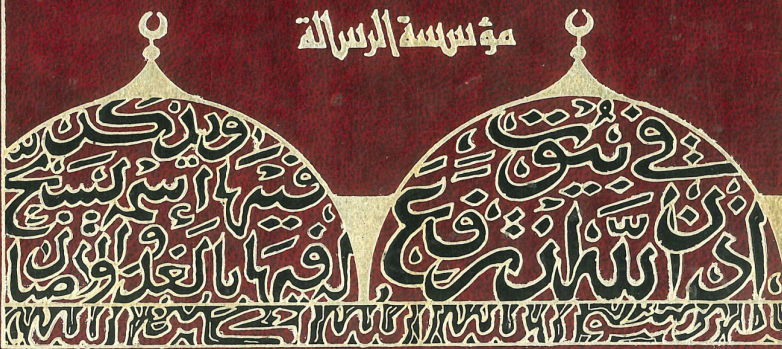 مؤسسة الرسالة
في بيوت
اذن الله ان ترفع
ويذكر
فيها إسمه يسبح
له فيها بالغدو والاصال